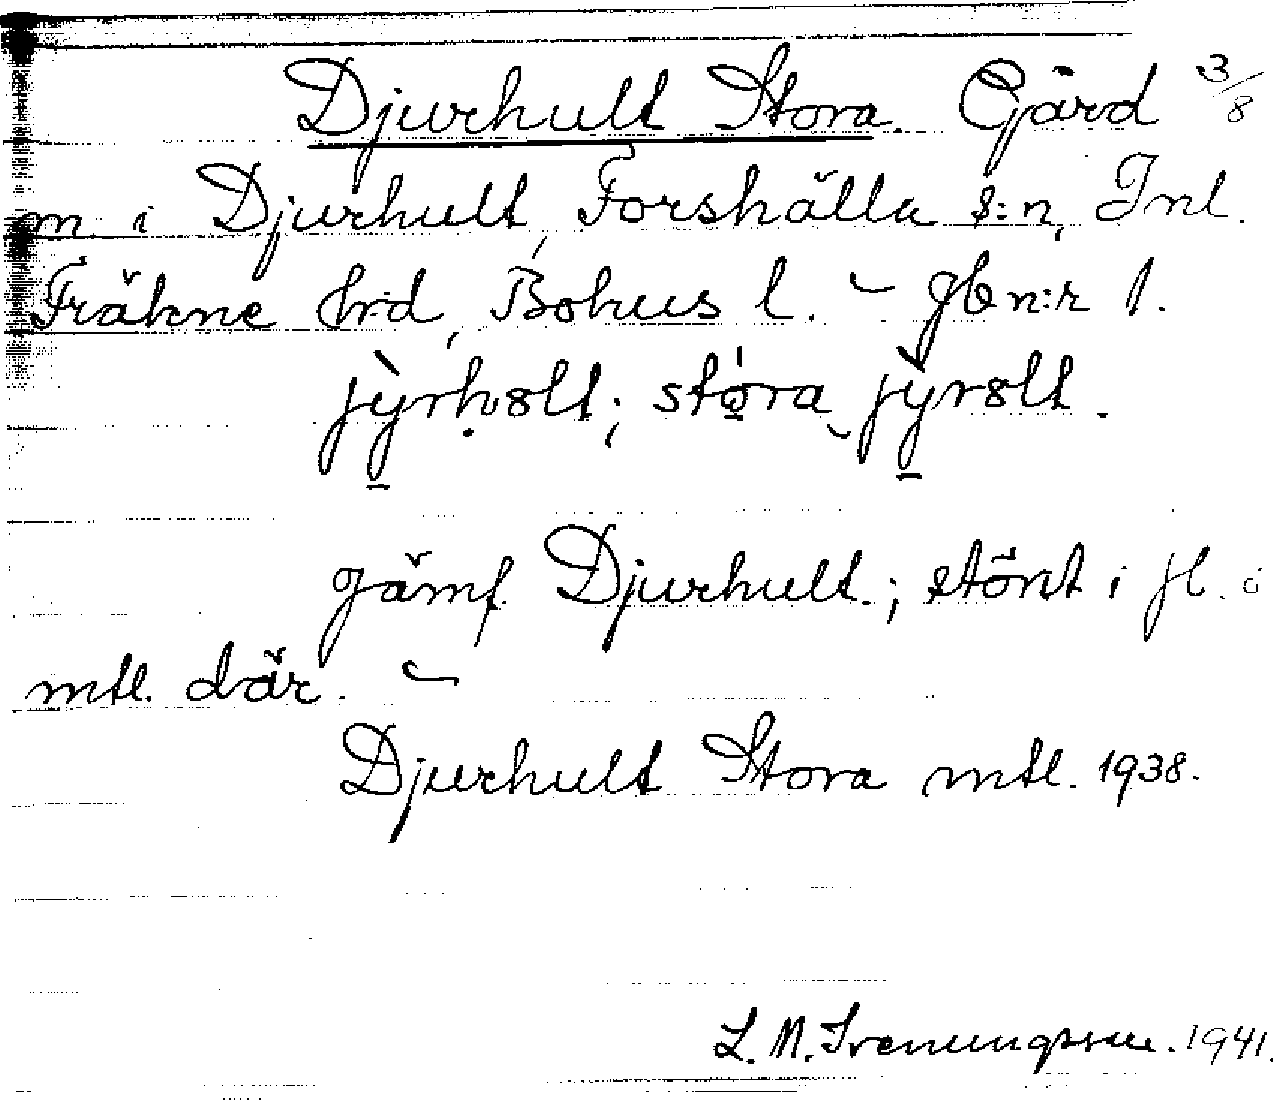 Djurhult Stora. Gård 3/8
m. i Djurhult, Forshälla s:n, Inl.
Fräkne hrd, Bohus l. – jb n:r 1.
jỳ̠rhɵlt; stọ́ra jỳ̠rɵlt.
jämf. Djurhult.; störst i fl. o
mtl. där. –
Djurhult Stora mtl. 1938.
L. M. Svenungsson. 1941.